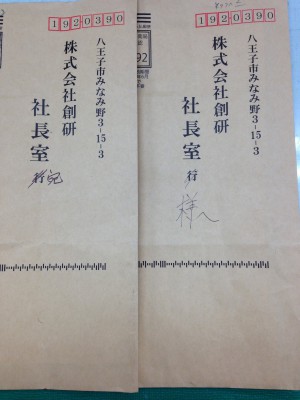 1920390
八王子市みなみ野3-15-3
株式会社創研
社長室
行
宛
1920390
八王子市みなみ野3-15-3
株式会社創研
社長室 行
様へ